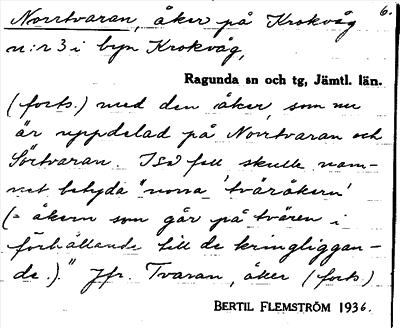 6.
Norrtvaran, åker på Krokvåg
n:r 3 i byn Krokvåg,
Ragunda sn och tg, Jämtl. län.
(forts.) med den åker, som nu
är uppdelad på Norrtvaran och
Sörtvaran. I så fall skulle nam-
net betyda "norra 'tväråkern'
(= åkern som går på tvären i
förhållande till de kringliggan-
de.)" Jfr. Tvaran, åker (forts)
BERTIL FLEMSTRÖM 1936.